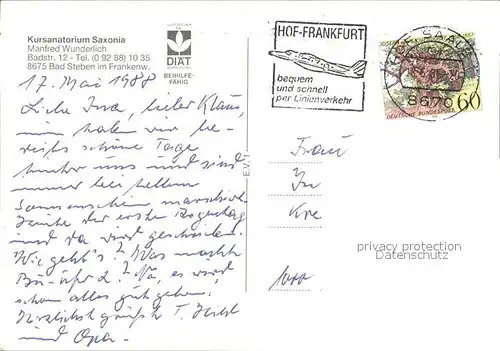 Kursanatorium Saxonia
Manfred Wunderlich
Badstr. 12 - Tel. (0 92 88) 10 35
8675 Bad Steben im Frankenw.
DIÄT
BEIHILFE-
FÄHIG
17. Mai 1988
Liebe Ina, lieber Klaus,
nun haben wir be-
reits schöne Tage
hinter uns und sind
immer bei hellem
Sonnenschein marschiert.
Heute der erste Regentag
und da wird geschrieben.
Wie geht's? Was macht
Na, es wird
schon alles gut gehen.
Herzlichst grüßt
und Opa.
E.V.1
HOF-FRANKFURT
bequem
und schnell
per Linienverkehr
HOF, SAALE
8670
60
DEUTSCHE BUNDESPOST
Frau
In
Kre
1000
privacy protection
Datenschutz